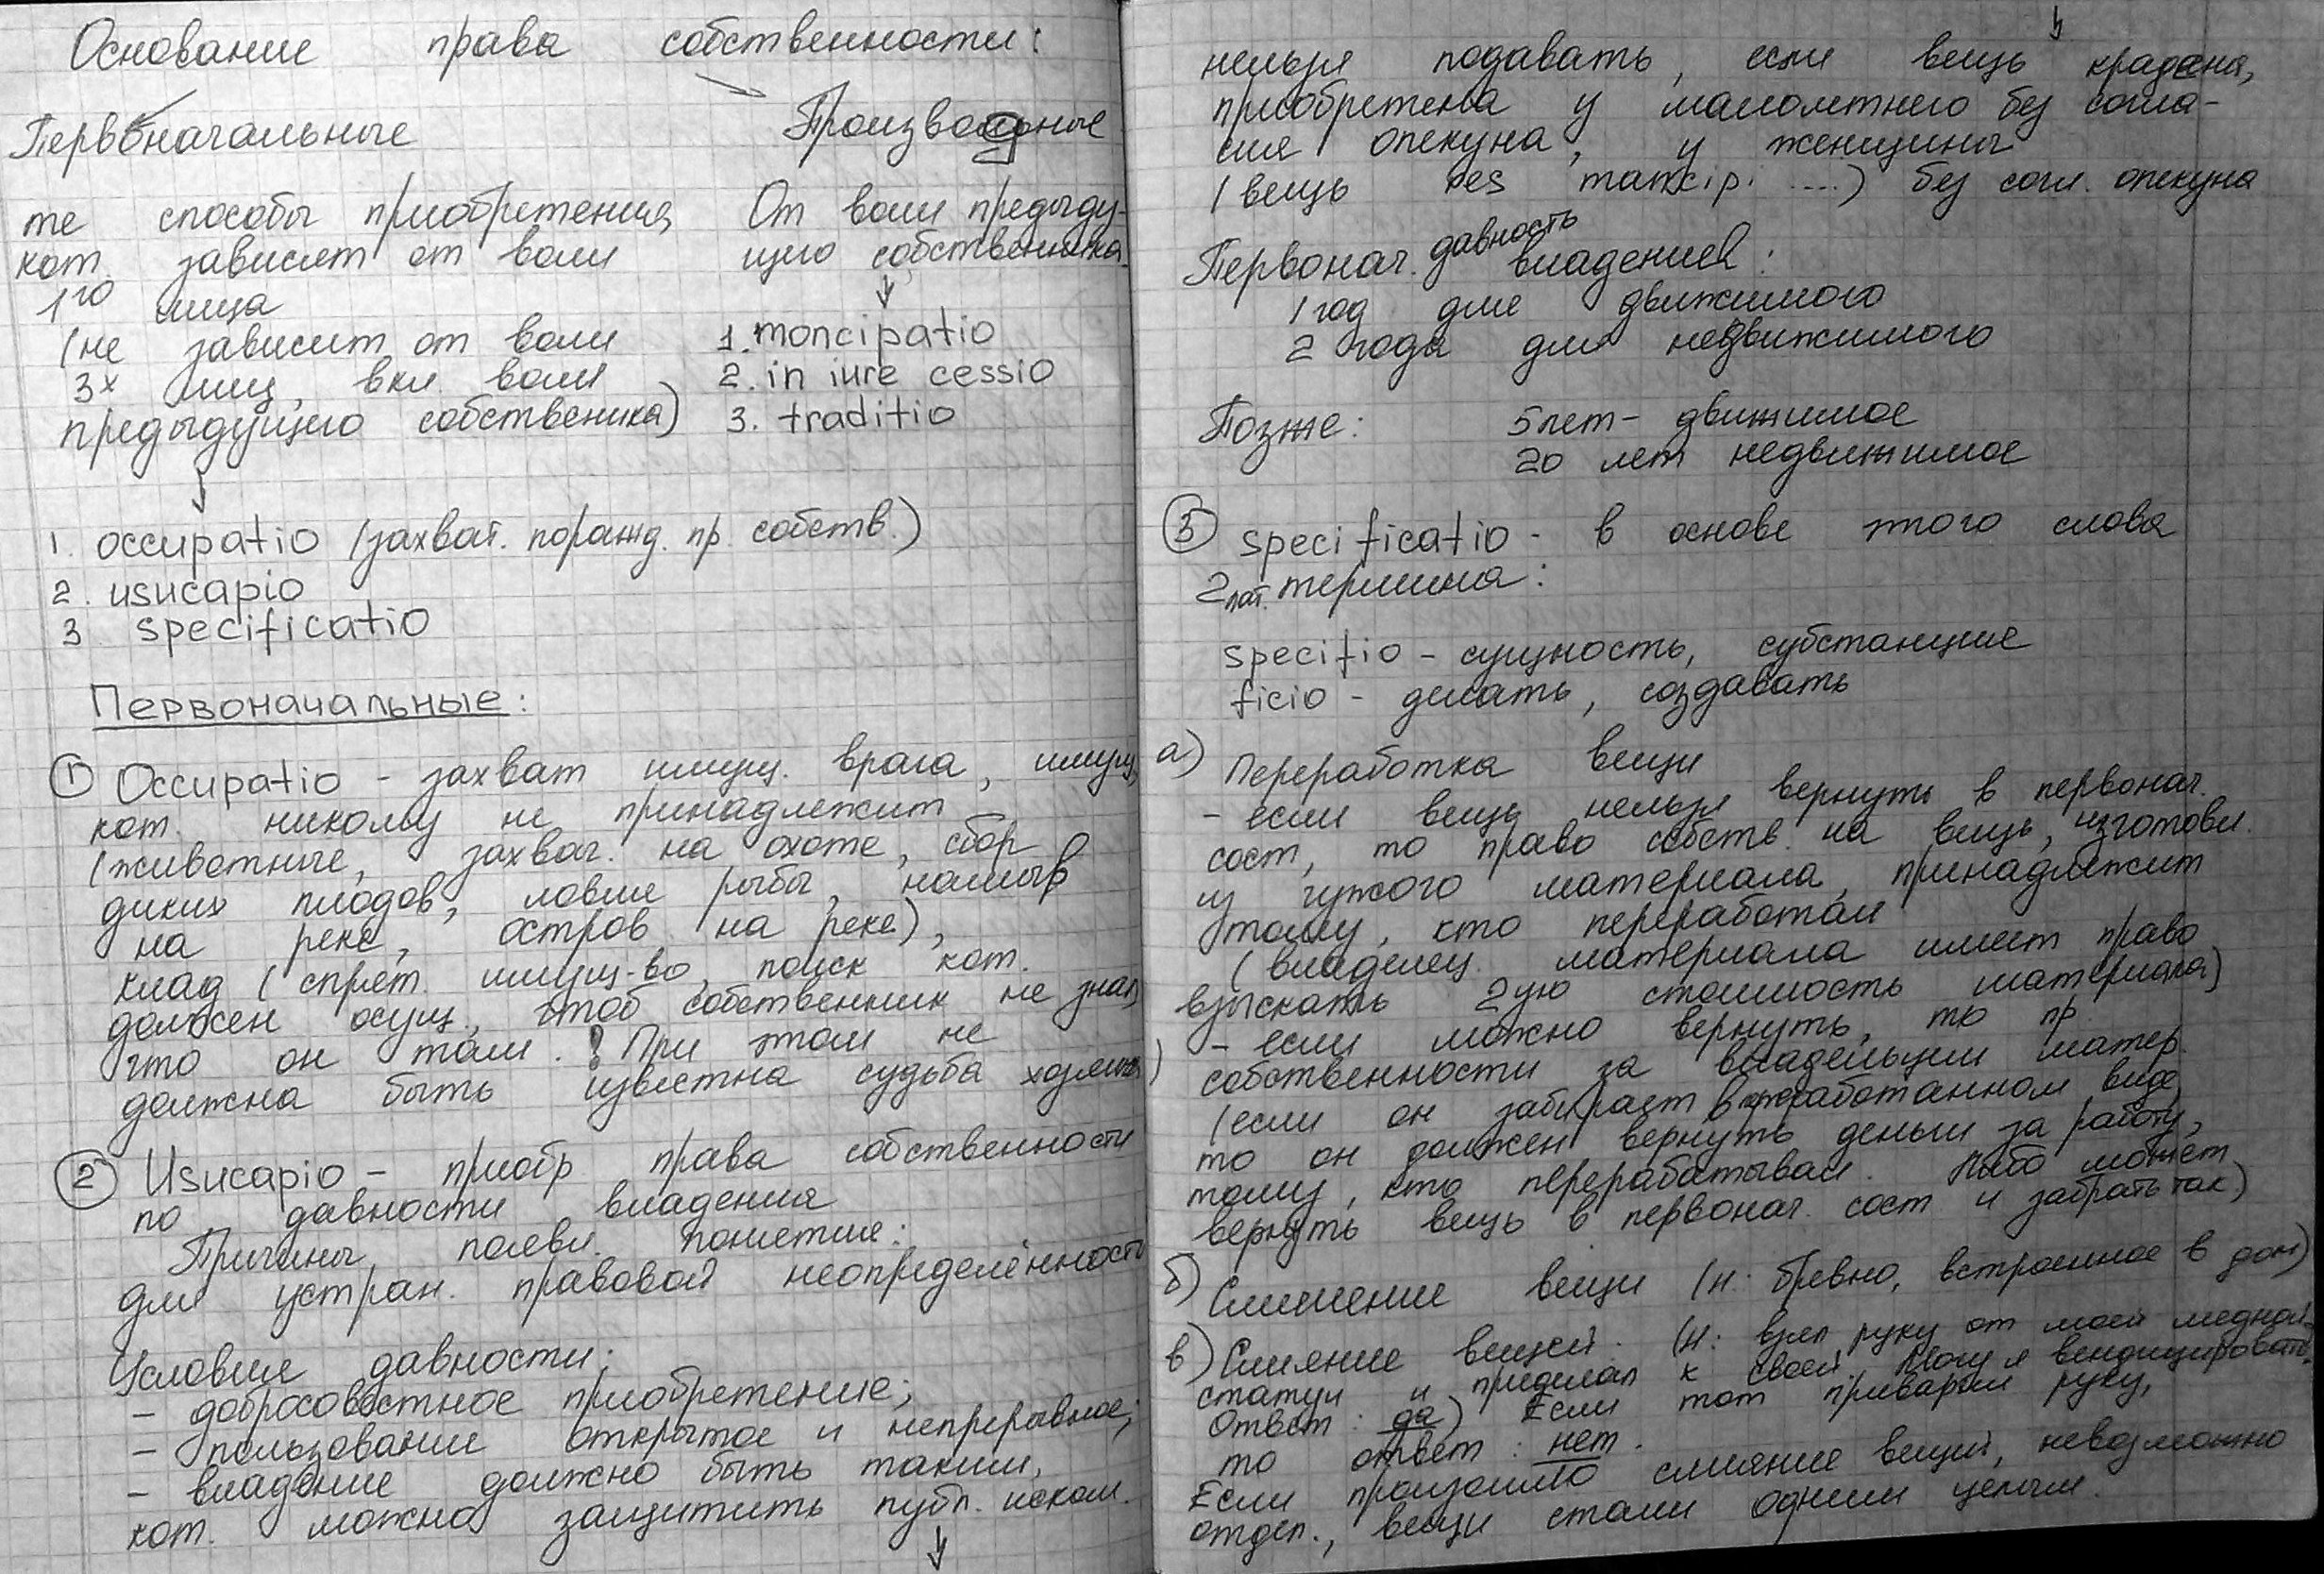 Основание права собственности:
Первоначальные
Производные
те способы приобретения,
кот. зависят от воли
1го лица
(не зависит от воли
3х лиц, вкл. воли
предыдущего собственика)
От воли предыду-
щего собственника
1. moncipatio
2. in iure cessio
3. traditio
1. occupatio (захват. поражд. пр. собств.)
2. usucapio
3 specificatio
Первоначальные:
① Occupatio - захват имущ. врага, имущ,
кот. никому не принадлежит
(животные, захвач. на охоте, сбор
диких плодов, ловля рыбы, намыв
на реке, остров на реке),
клад (спрят. имущ-во, поиск кот.
должен осущ., чтоб собственник не знал,
что он там. ! При этом не
должна быть известна судьба хозяина)
② Usucapio - приобр. права собственности
по давности владения
Причины появл. понятия:
для устран. правовой неопределённости
Условия давности:
- добросовостное приобретение;
- пользование открытое и непрерывное;
- владение должно быть таким,
кот. можно защитить публ. иском.
нельзя подавать, если вещь крадена,
приобретена у малолетнего без согла-
сия опекуна, у женщины
(вещь res mancipi ....) без согл. опекуна
Первонач. давность владения:
1 год для движимого
2 года для недвижимого
Позже: 5 лет - движимое
20 лет недвижимое
③ specificatio - в основе этого слова
2 лат. термина:
specifio - сущность, субстанция
ficio - делать, создавать
а) Переработка вещи
- если вещь нельзя вернуть в первонач.
сост, то право собств. на вещь, изготовл.
из чужого материала, принадлежит
тому, кто переработал
(владелец материала имеет право
взыскать 2ую стоимость материала)
- если можно вернуть, то пр.
собственности за владельцем матер.
(если он забирает в переработанном виде,
то он должен вернуть деньги за работу,
тому, кто перерабатывал. Либо может
вернуть вещь в первонач. сост и забрать так)
б) Смешение вещи (н: бревно, встроенное в дом)
в) Слияние вещей. (н: взял руку от моей медной
статуи и приделал к своей. Могу я виндицировать?
Ответ: да) Если тот приварил руку,
то ответ: нет.
Если произошло слияние вещий, невозможно
отдел., вещи стали одним целым.